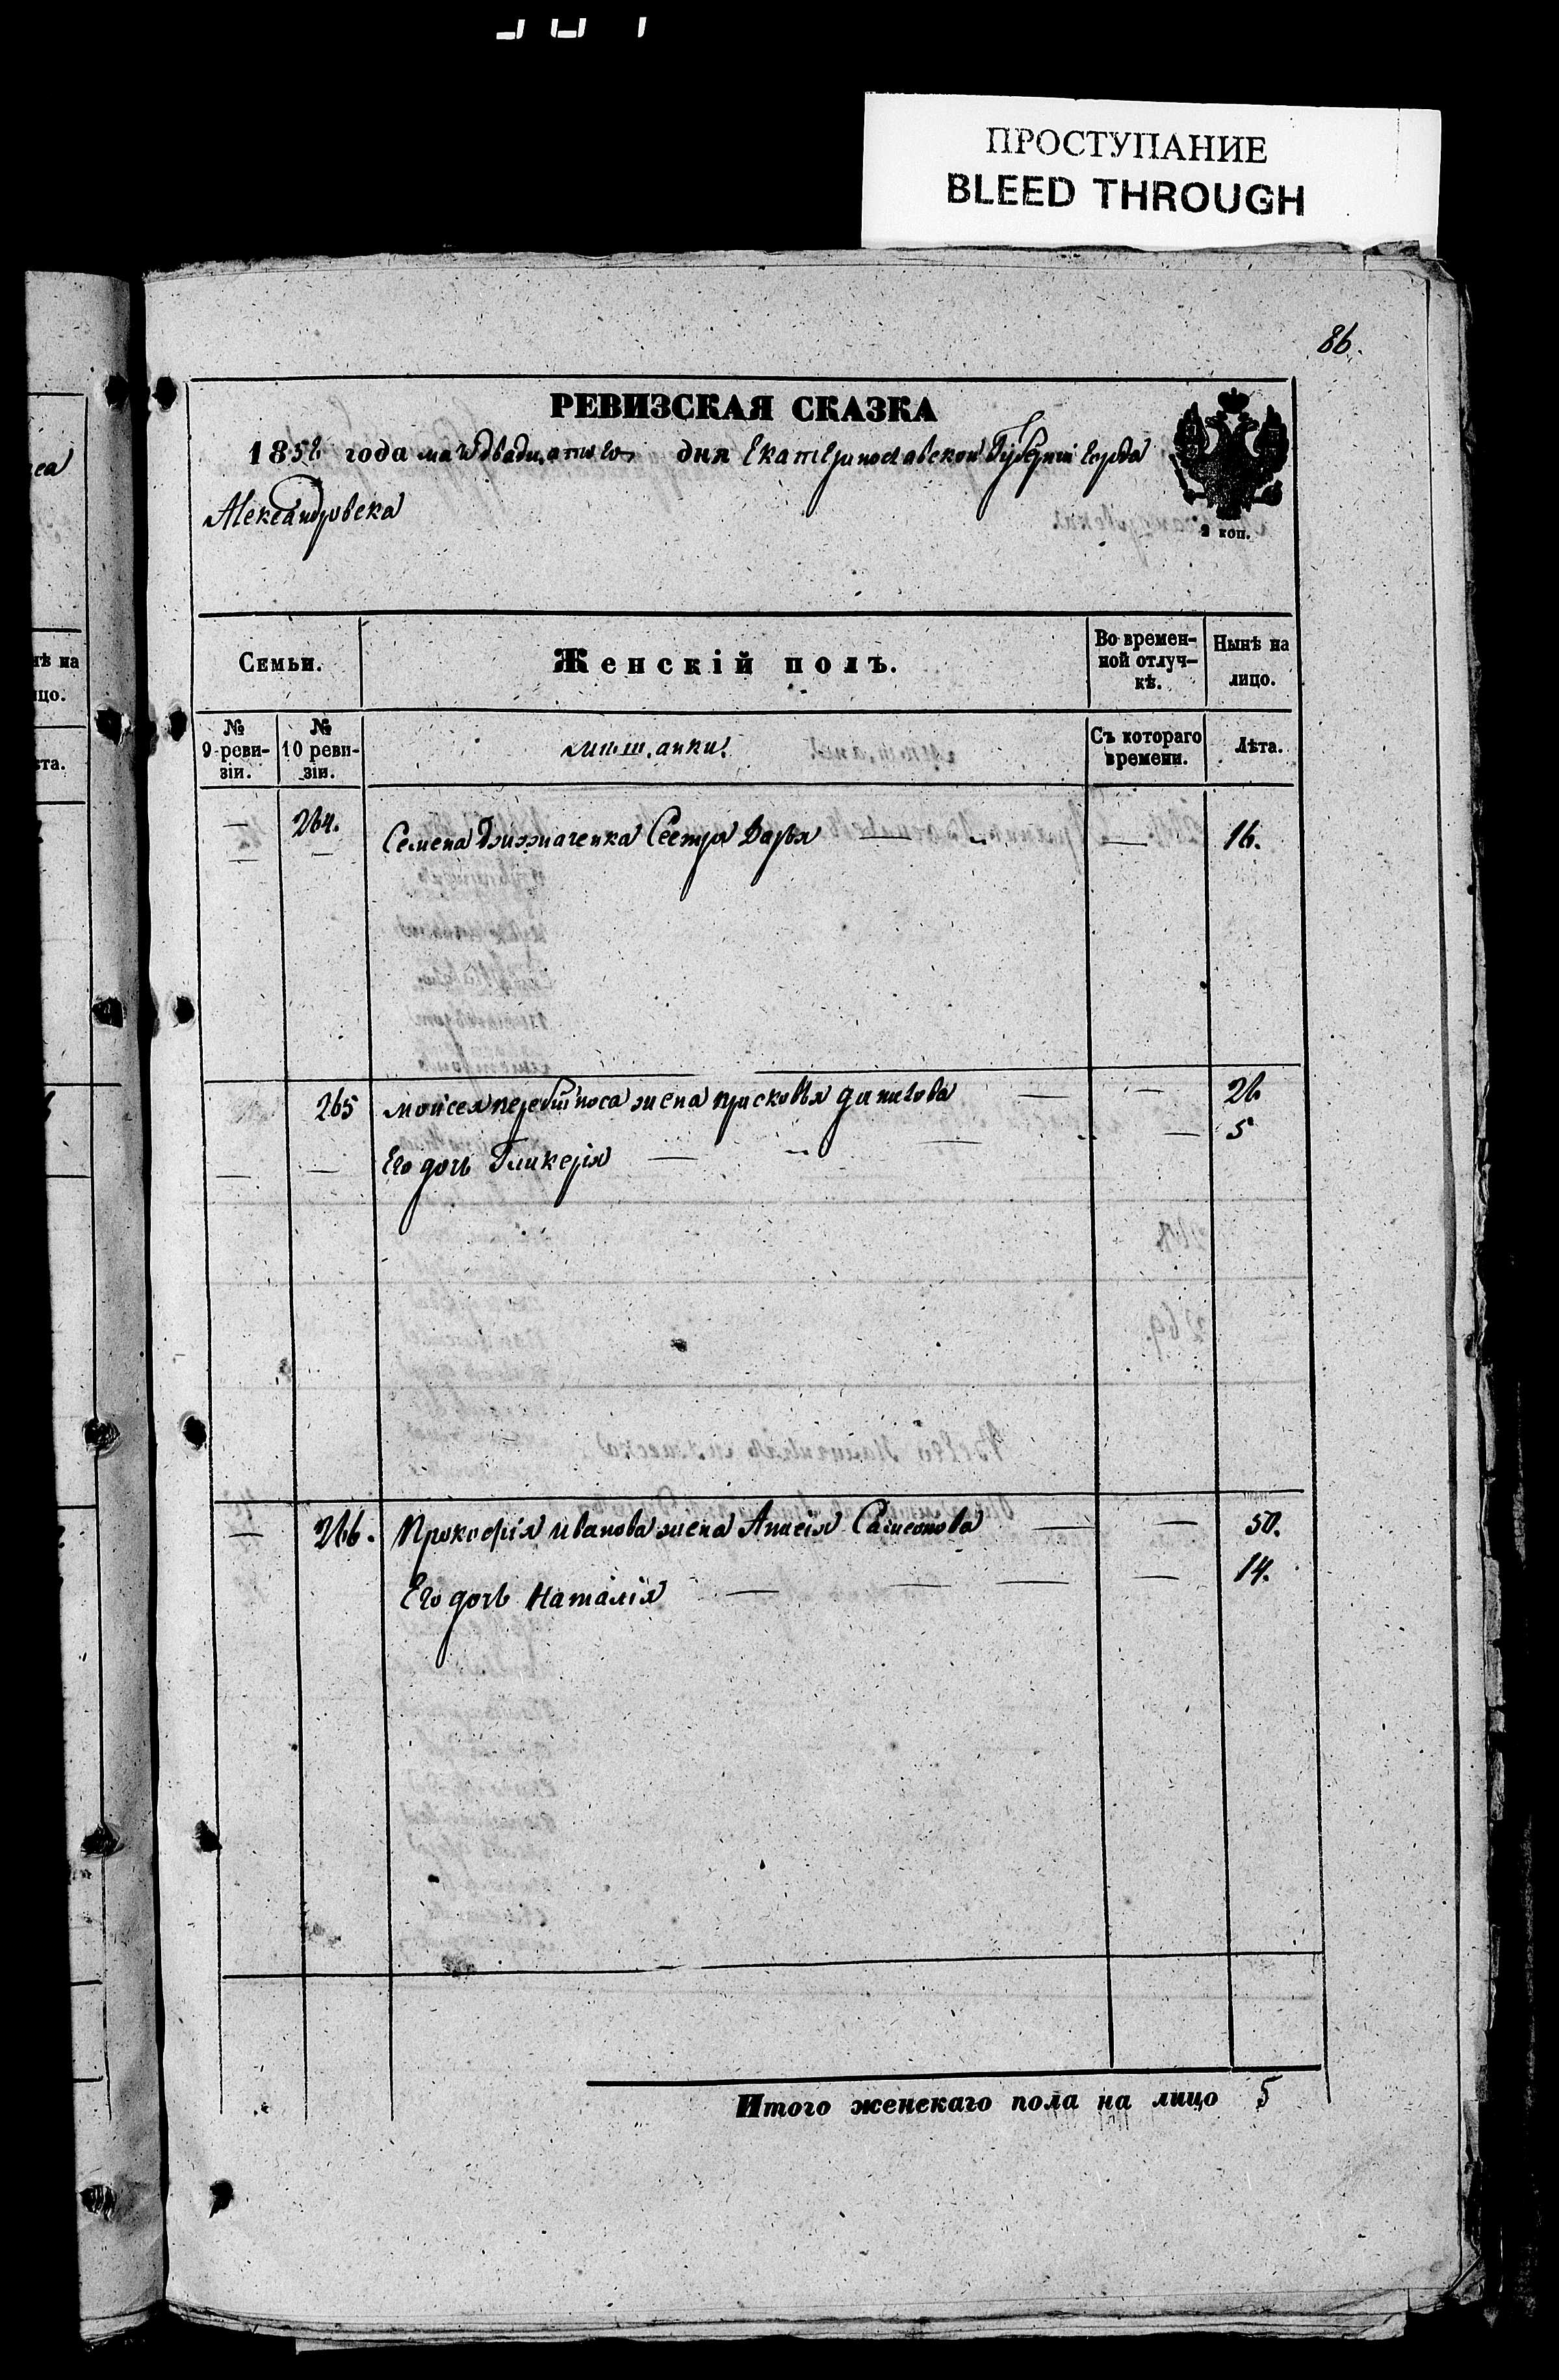 ПРОСТУПАНИЕ
BLEED THROUGH
86.
РЕВИЗСКАЯ СКАЗКА
1858 года мая двадцатого дня Екатеринославской Губерніи города
Александровска
2 коп.
Семьи.
Женскій полъ.
Во времен-
ной отлуч-
кѣ.
Нынѣ на
лицо.
№
9 реви-
зіи.
№
10 реви-
зіи.
Съ котораго
времени.
Лѣта.
264.
Семена Сестра Дарья
16.
265
моисея жена прасковья данилова
26
Его дочь Гликерія
5
266.
Прокофія иванова жена Анисія Самсонова
50.
Его дочь Наталія
14.
Итого женскаго пола на лицо 5